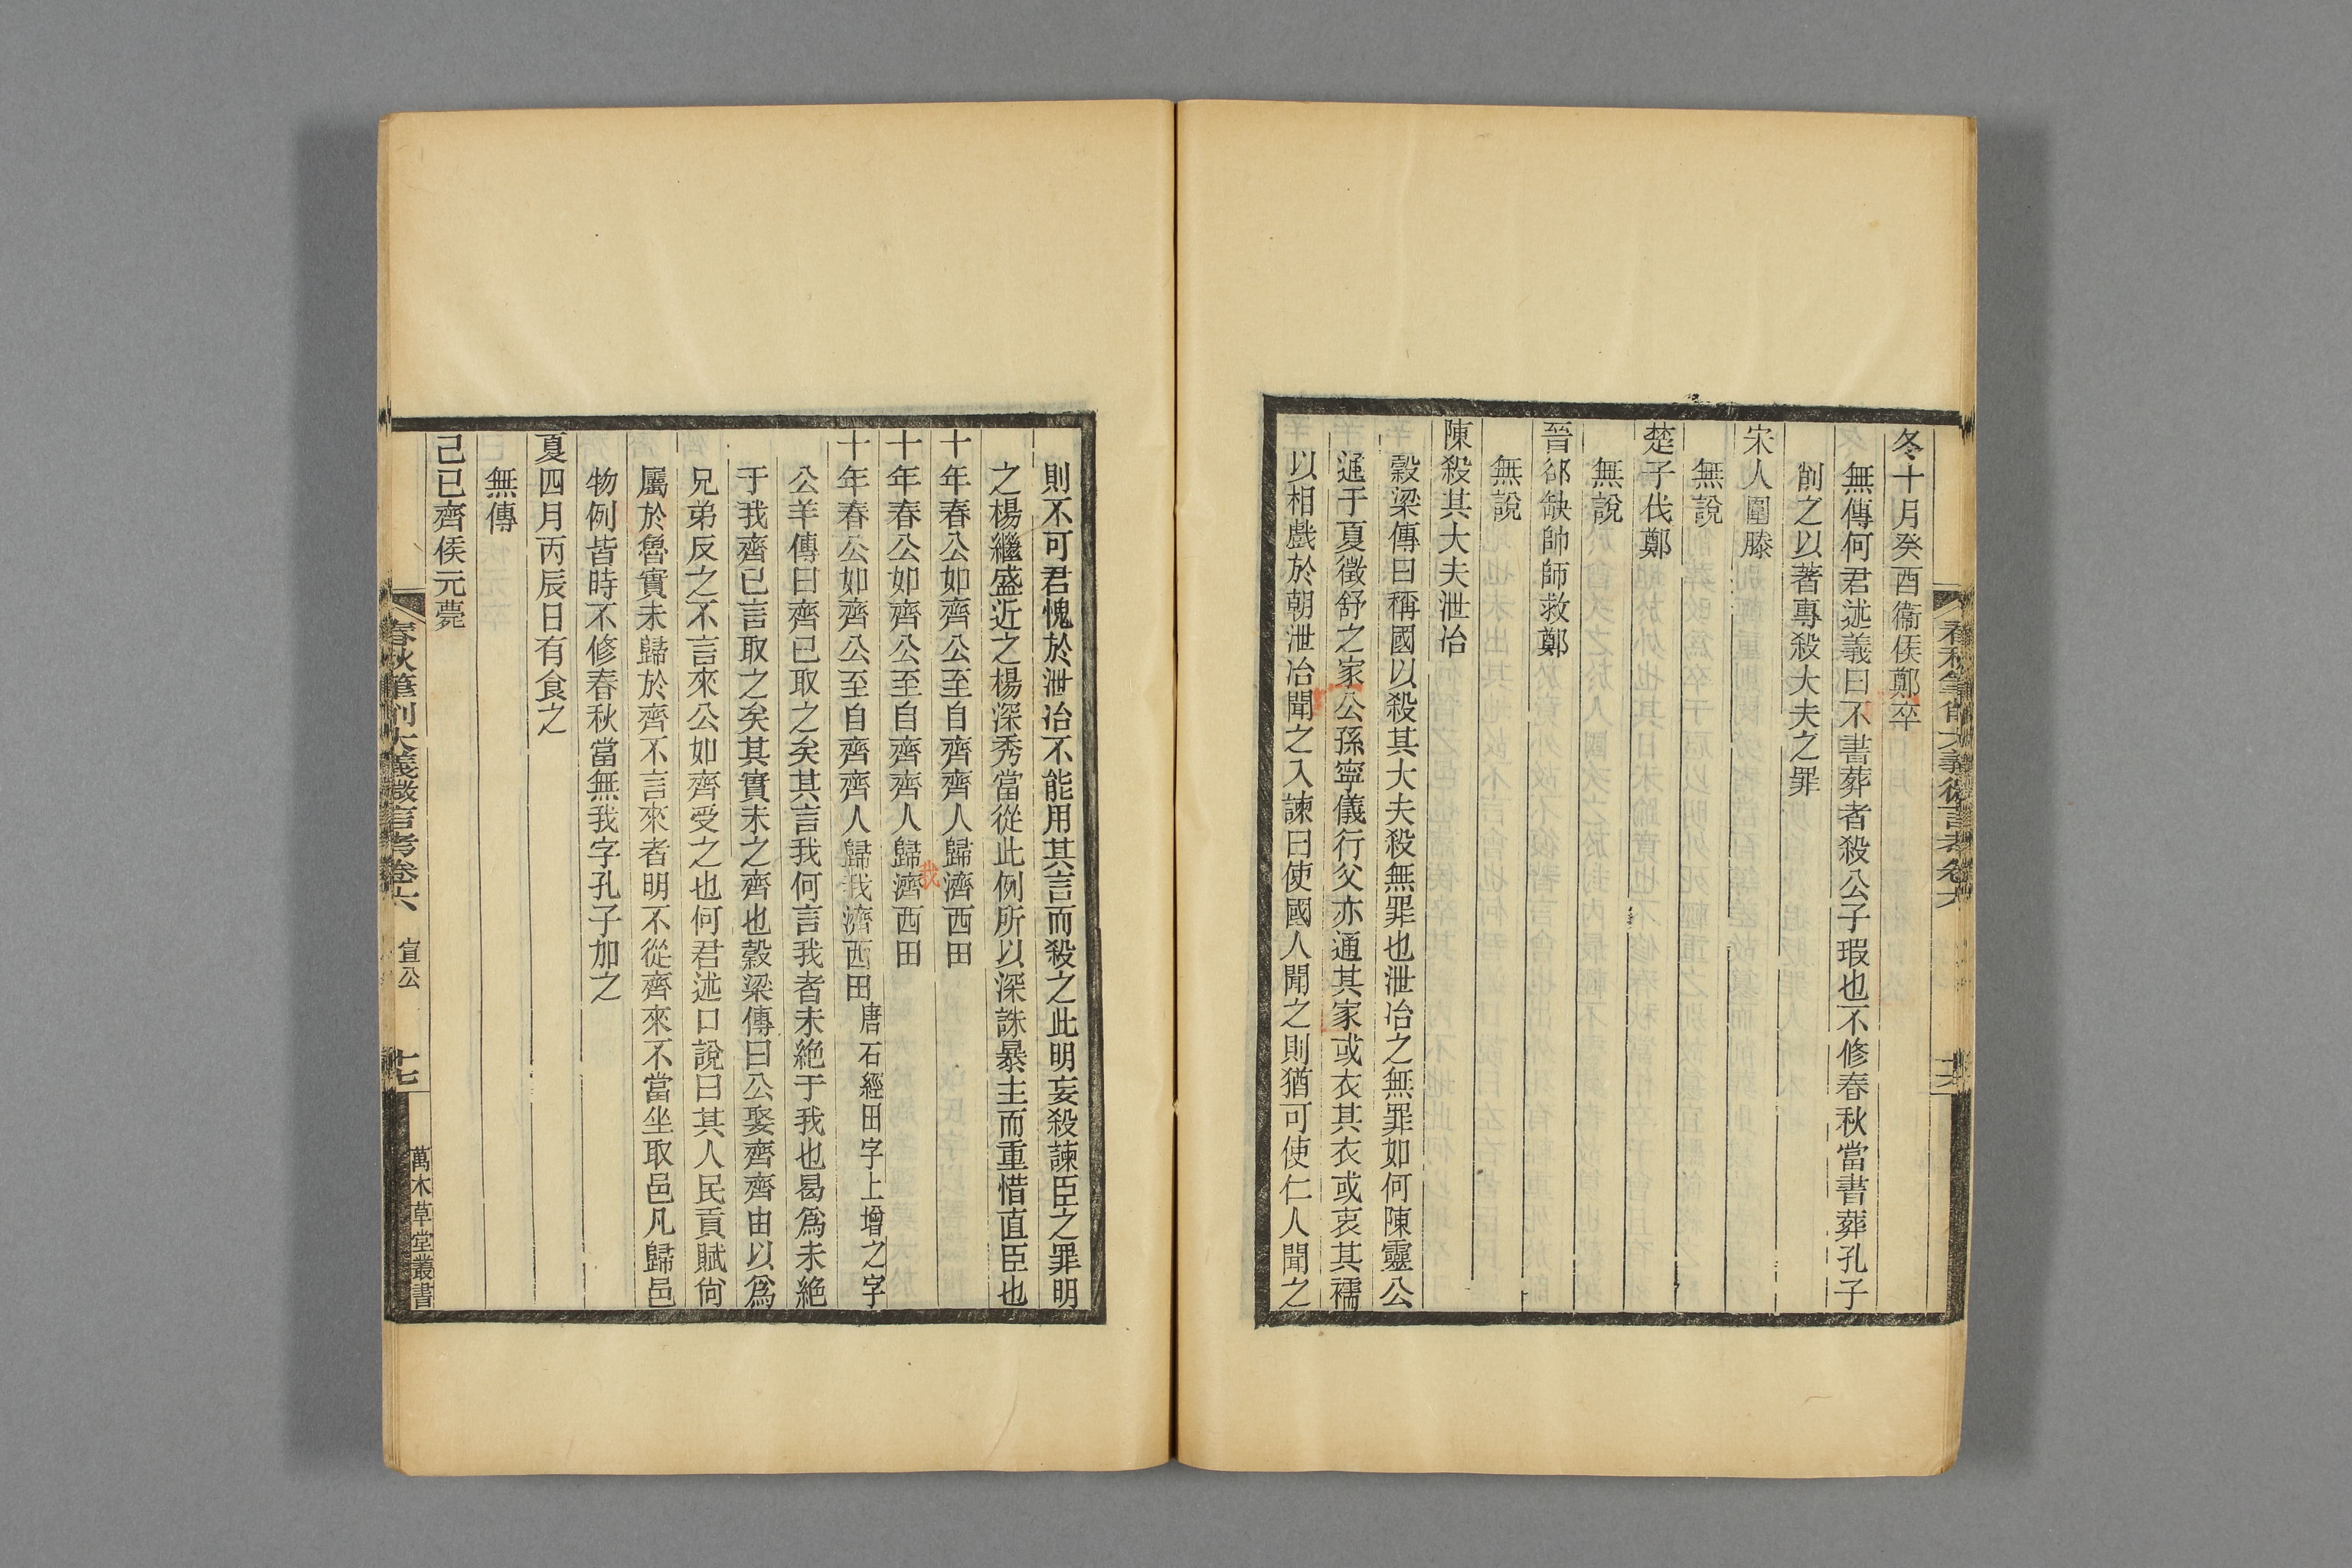 冬十月癸酉衞侯鄭卒
無傳何君述義曰不書葬者殺公子瑕也不修春秋當書葬孔子
削之以著專殺大夫之罪
宋人圍滕
無說
楚子伐鄭
無說
晉郤缺帥師救鄭
無說
陳殺其大夫泄冶
穀梁傳曰稱國以殺其大夫殺無罪也泄冶之無罪如何陳靈公
通于夏徵舒之家公孫寧儀行父亦通其家或衣其衣或衷其襦
以相戲於朝泄冶聞之入諫曰使國人聞之則猶可使仁人聞之
則不可君愧於泄冶不能用其言而殺之此明妄殺諫臣之罪明
之楊繼盛近之楊深秀當從此例所以深誅暴主而重惜直臣也
十年春公如齊公至自齊齊人歸濟西田
我
十年春公如齊公至自齊齊人歸濟西田
十年春公如齊公至自齊齊人歸我濟西田唐石經田字上增之字
公羊傳曰齊已取之矣其言我何言我者未絕于我也曷爲未絕
于我齊已言取之矣其實未之齊也穀梁傳曰公娶齊齊由以爲
兄弟反之不言來公如齊受之也何君述口說曰其人民貢賦尙
屬於魯實未歸於齊不言來者明不從齊來不當坐取邑凡歸邑
物例皆時不修春秋當無我字孔子加之
夏四月丙辰日有食之
無傳
己巳齊侯元薨
春秋筆削大義微言考卷六 宣公 十七 萬木草堂叢書